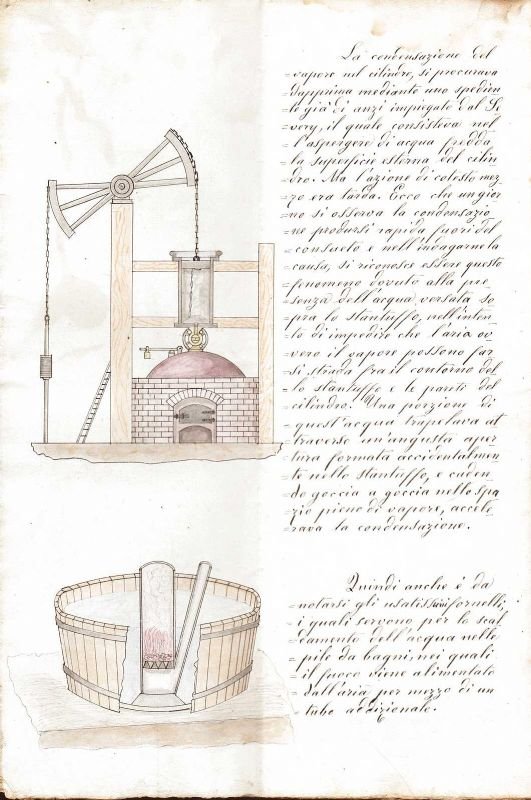 La condensazione del
=vapore nel cilindro, si procurava
=dapprima mediante uno spedien
=te già d'anzi impiegato dal Sa
=very, il quale consisteva nel
=l'aspergere di acqua fredda
=la superficie esterna del cilin
=dro. Ma l'azione di cotesto mez
=zo era tarda. Ecco che un gior
=no si osserva la condensazio
=ne prodursi rapida fuori del
=consueto e nell'indagarne la
=causa, si riconosce essere questo
=fenomeno dovuto alla pre
=senza dell'acqua versata so
=pra lo stantuffo, nell'inten
=to di impedire che l'aria ov
=vero il vapore possono far
=si strada fra il contorno del
=lo stantuffo e le pareti del
=cilindro. Una porzione di
=quest'acqua trapelava at
=traverso un'angusta aper
=tura formata accidentalmen
=te nello stantuffo, e caden
=do goccia a goccia nello spa
=zio pieno di vapore, accele
=rava la condensazione.
Quindi anche è da
=notarsi gli usatissimi fornelli,
=i quali servono per lo scal
=damento dell'acqua nelle
=pile da bagni, nei quali
=il fuoco viene alimentato
=dall'aria per mezzo di un
=tubo addizionale.